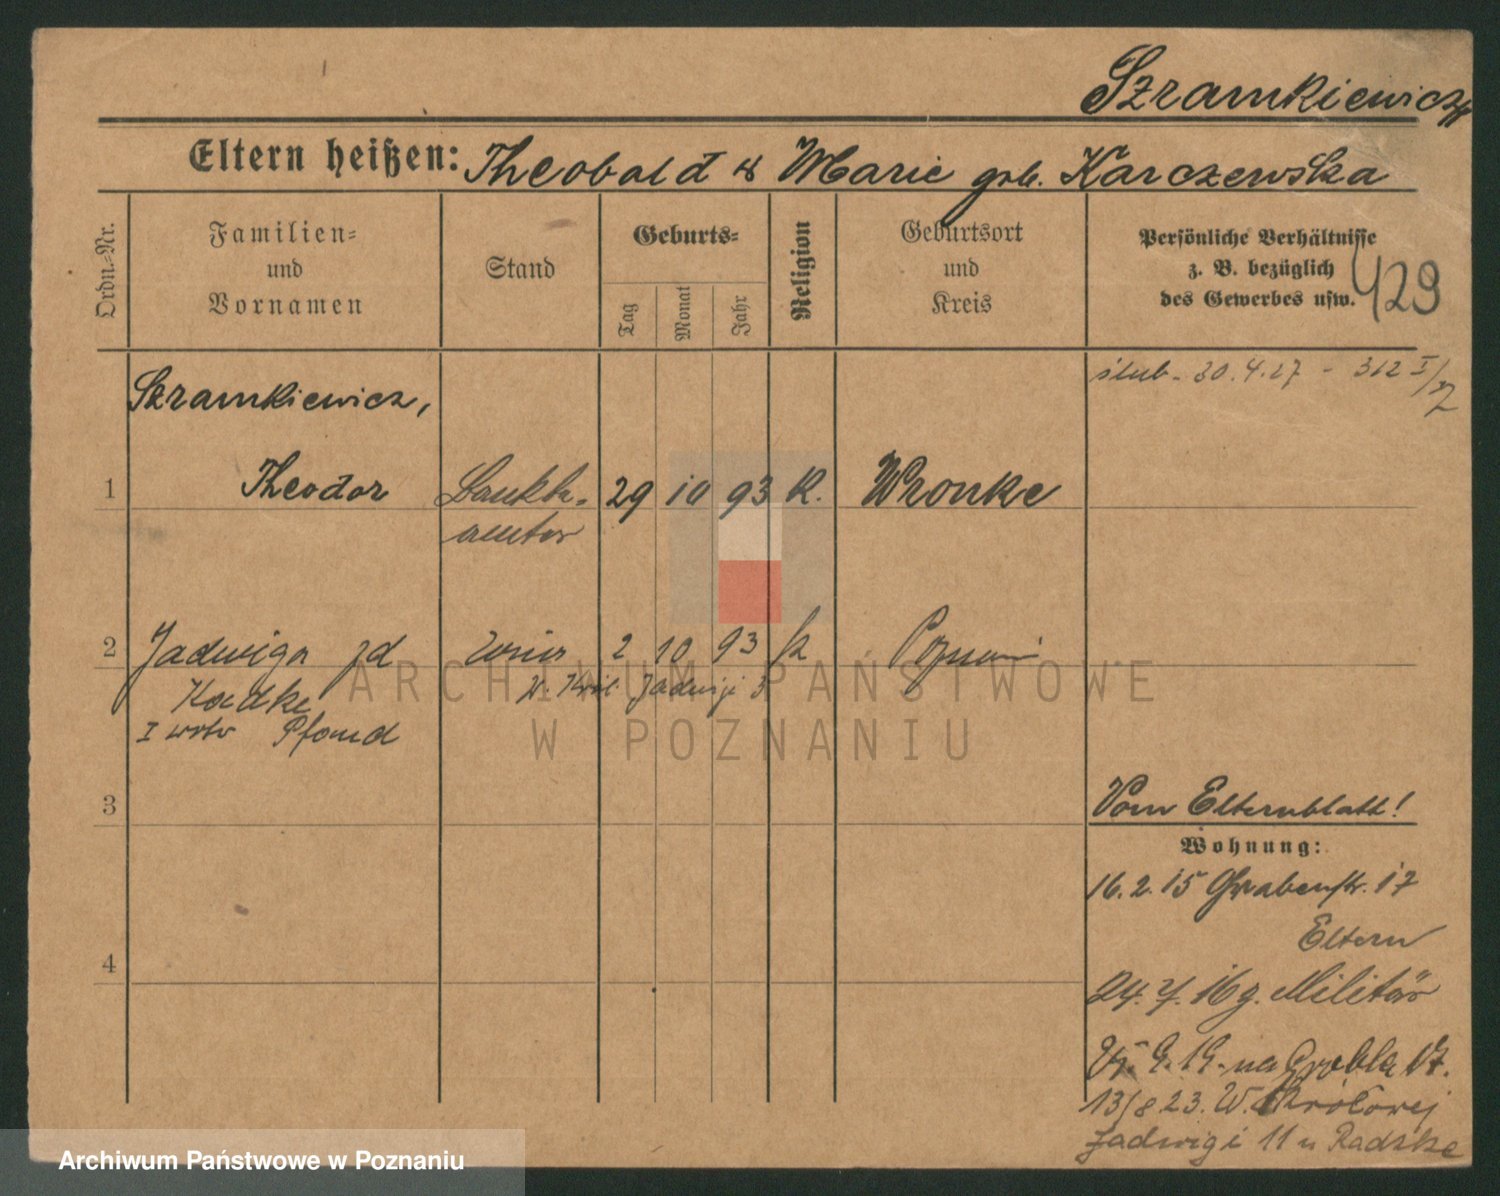 Szramkiewicz
Eltern heißen: Theobald & Marie geb. Karczewska
Ordn.-Nr.
Familien-
und
Vornamen
Stand
Geburts-
Tag
Monat
Jahr
Religion
Geburtsort
und
Kreis
Persönliche Verhältnisse
z. B. bezüglich
des Gewerbes usw.
429
ślub - 30.4.27 - 312 I/
Szramkiewicz,
1 Theodor 29 10 93 K. Wronke
2 Jadwiga zd 2 10 93 k Poznań
W. Król. Jadwigi 3
Radke
I
3
Vom Elternblatt!
Wohnung:
16.2.15 Grabenstr. 17
Eltern
4
24. 7. 16 z. Militär
9. 19. na Grobla 17.
13/8 23. W. Królowej
Jadwigi 11 u Radtke
ARCHIWUM PAŃSTWOWE
W POZNANIU
Archiwum Państwowe w Poznaniu